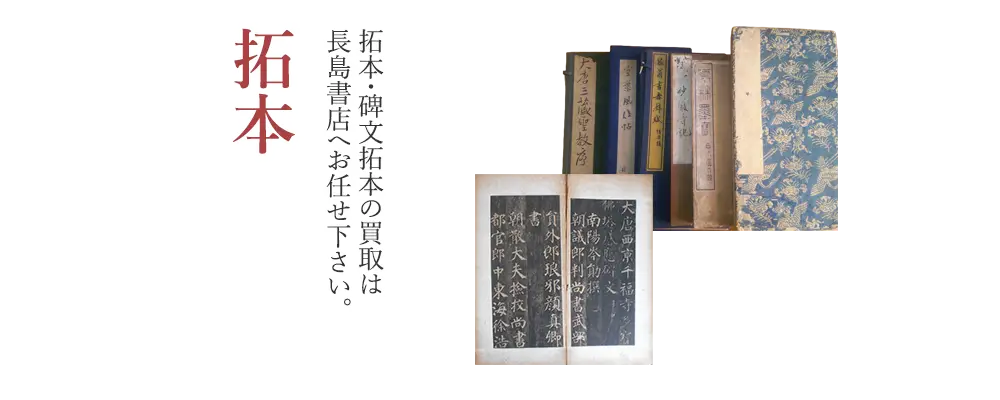 拓本
拓本・碑文拓本の買取は
長島書店へお任せ下さい。
大唐三藏聖教序
大唐西京千福寺多寶
佛塔感應碑文
南陽岑勛撰
朝議郎判尚書武部
員外郎琅邪顏真卿
書
朝散大夫撿挍尚書
都官郎中東海徐浩